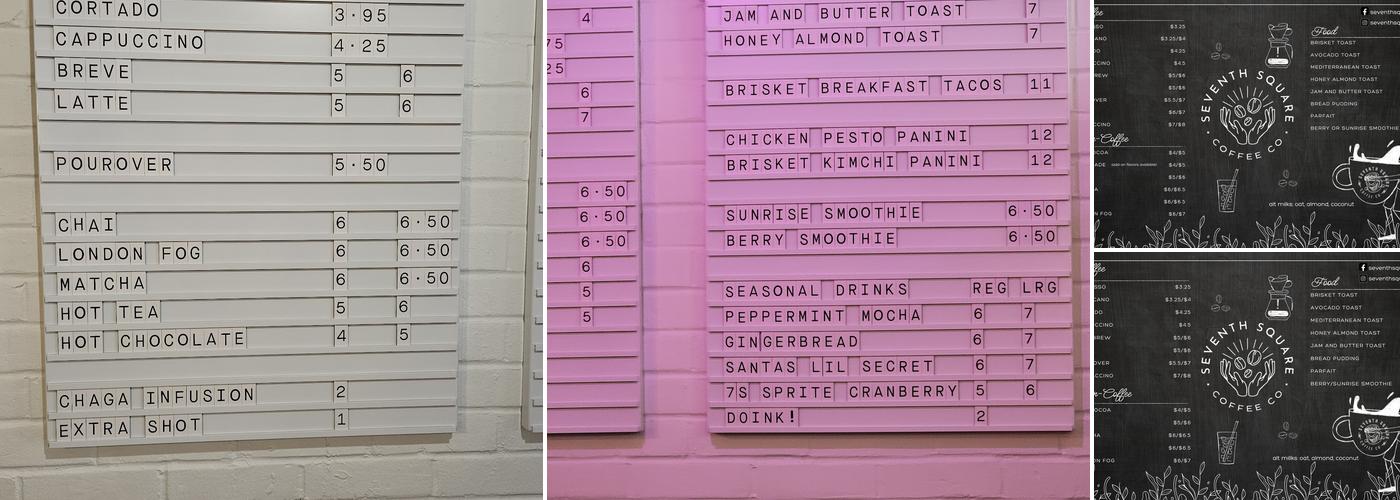 CORTADO 3.95
CAPPUCCINO 4.25
BREVE 5 6
LATTE 5 6
POUROVER 5.50
CHAI 6 6.50
LONDON FOG 6 6.50
MATCHA 6 6.50
HOT TEA 5 6
HOT CHOCOLATE 4 5
CHAGA INFUSION 2
EXTRA SHOT 1
4
6
7
6.50
6.50
6.50
6
5
5
JAM AND BUTTER TOAST 7
HONEY ALMOND TOAST 7
BRISKET BREAKFAST TACOS 11
CHICKEN PESTO PANINI 12
BRISKET KIMCHI PANINI 12
SUNRISE SMOOTHIE 6.50
BERRY SMOOTHIE 6.50
SEASONAL DRINKS REG LRG
PEPPERMINT MOCHA 6 7
GINGERBREAD 6 7
SANTAS LIL SECRET 6 7
7S SPRITE CRANBERRY 5 6
DOINK! 2
$3.25
$3.25/$4
$4.25
$4.5
$5/$6
$5/$6
$5.5/$7
$6/$7
$7/$8
$4/$5
$4/$5
$5/$6
$6/$6.5
$6/$6.5
$6/$7
SEVENTH SQUARE
COFFEE CO
Food
BRISKET TOAST
AVOCADO TOAST
MEDITERRANEAN TOAST
HONEY ALMOND TOAST
JAM AND BUTTER TOAST
BREAD PUDDING
PARFAIT
BERRY OR SUNRISE SMOOTHIE
alt milks: oat, almond, coconut
$3.25
$3.25/$4
$4.25
$4.5
$5/$6
$5/$6
$5.5/$7
$7/$8
$4/$5
$5/$6
$6/$6.5
$6/$6.5
$6/$7
SEVENTH SQUARE
COFFEE CO
Food
BRISKET TOAST
AVOCADO TOAST
MEDITERRANEAN TOAST
HONEY ALMOND TOAST
JAM AND BUTTER TOAST
BREAD PUDDING
PARFAIT
BERRY/SUNRISE SMOOTHIE
alt milks: oat, almond, coconut